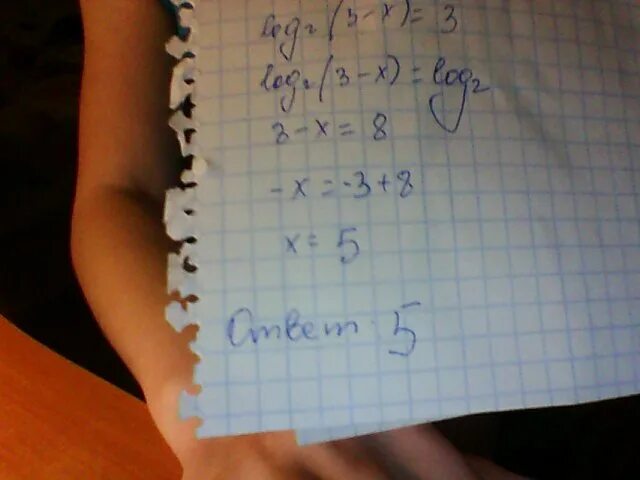 log₂(3-x)=3
log₂(3-x)=log₂
3-x=8
-x=-3+8
x=5
Ответ 5